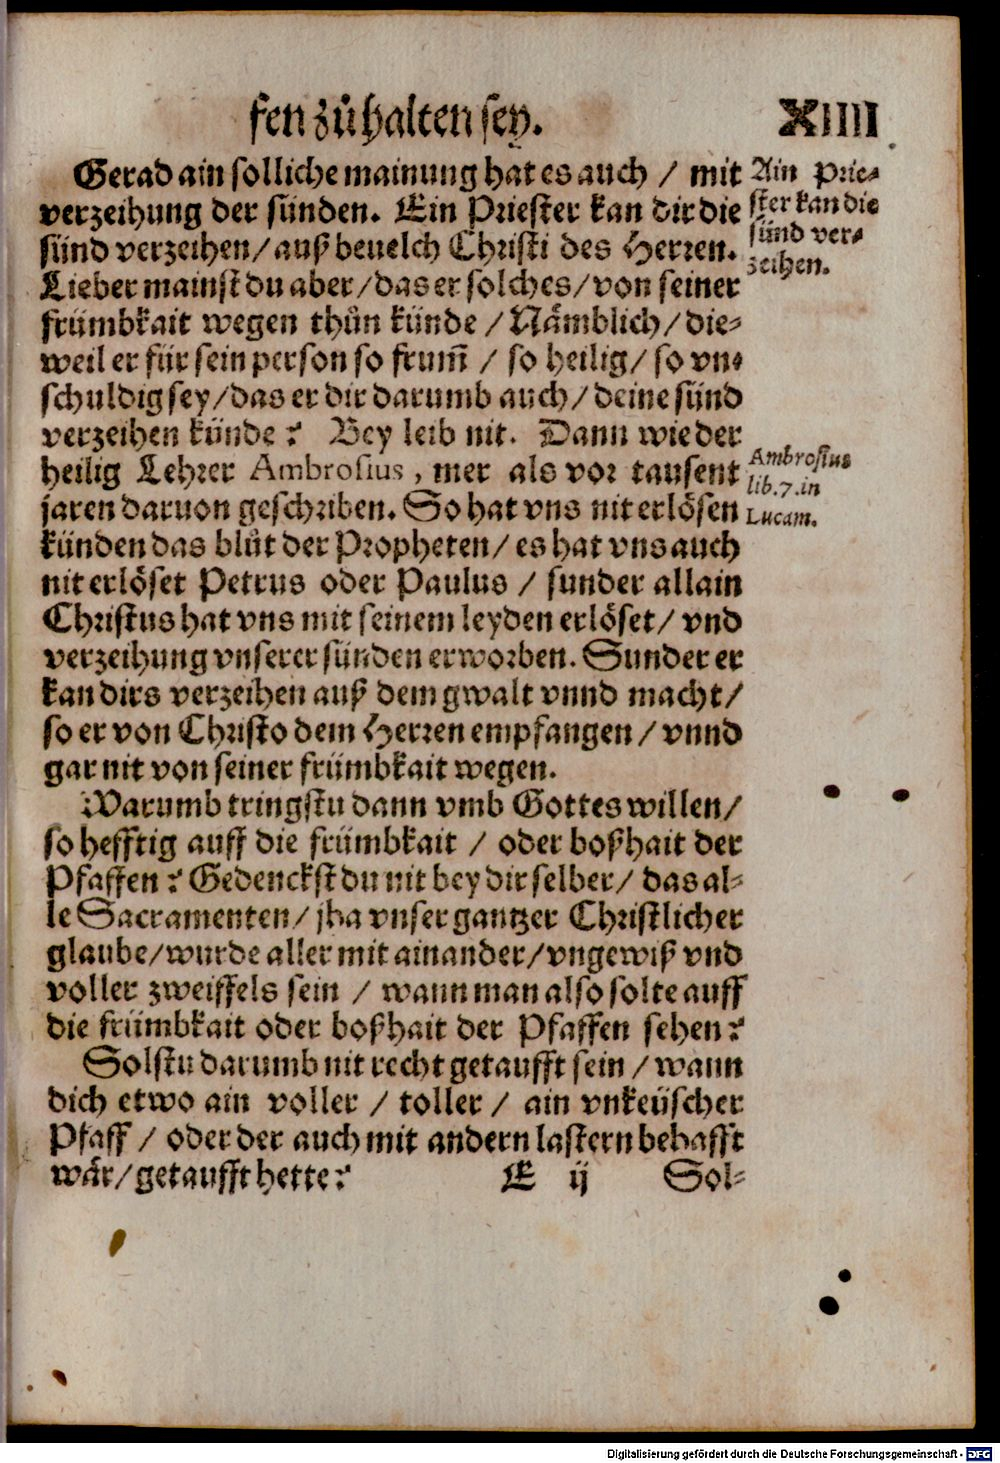 fen zů halten sey. XIIII
Gerad ain solliche mainung hat es auch / mit
verzeihung der sünden. Ein Priester kan dir die
sünd verzeihen / auß beuelch Christi des Herren.
Lieber mainst du aber / das er solches / von seiner
frümbkait wegen thůn künde / Nämblich / die-
weil er für sein person so frum̃ / so heilig / so vn-
schuldig sey / das er dir darumb auch / deine sünd
verzeihen künde? Bey leib nit. Dann wie der
heilig Lehrer Ambrosius, mer als vor tausent
jaren daruon geschriben. So hat vns nit erlösen
künden das blůt der Propheten / es hat vns auch
nit erlöset Petrus oder Paulus / sunder allain
Christus hat vns mit seinem leyden erlöset / vnd
verzeihung vnserer sünden erworben. Sunder er
kan dirs verzeihen auß dem gwalt vnnd macht /
so er von Christo dem Herren empfangen / vnnd
gar nit von seiner frümbkait wegen.
Warumb tringstu dann vmb Gottes willen /
so hefftig auff die frümbkait / oder boßhait der
Pfaffen? Gedenckst du nit bey dir selber / das al-
le Sacramenten / jha vnser gantzer Christlicher
glaube / wurde aller mit ainander / vngewiß vnd
voller zweiffels sein / wann man also solte auff
die frümbkait oder boßhait der Pfaffen sehen?
Solstu darumb nit recht getaufft sein / wann
dich etwo ain voller / toller / ain vnkeüscher
Pfaff / oder der auch mit andern lastern behafft
wär / getaufft hette? E ij Sol-
Ain Prie-
ster kan die
sünd ver-
zeihen.
Ambrosius
lib. 7. in
Lucam.
Digitalisierung gefördert durch die Deutsche Forschungsgemeinschaft - DFG